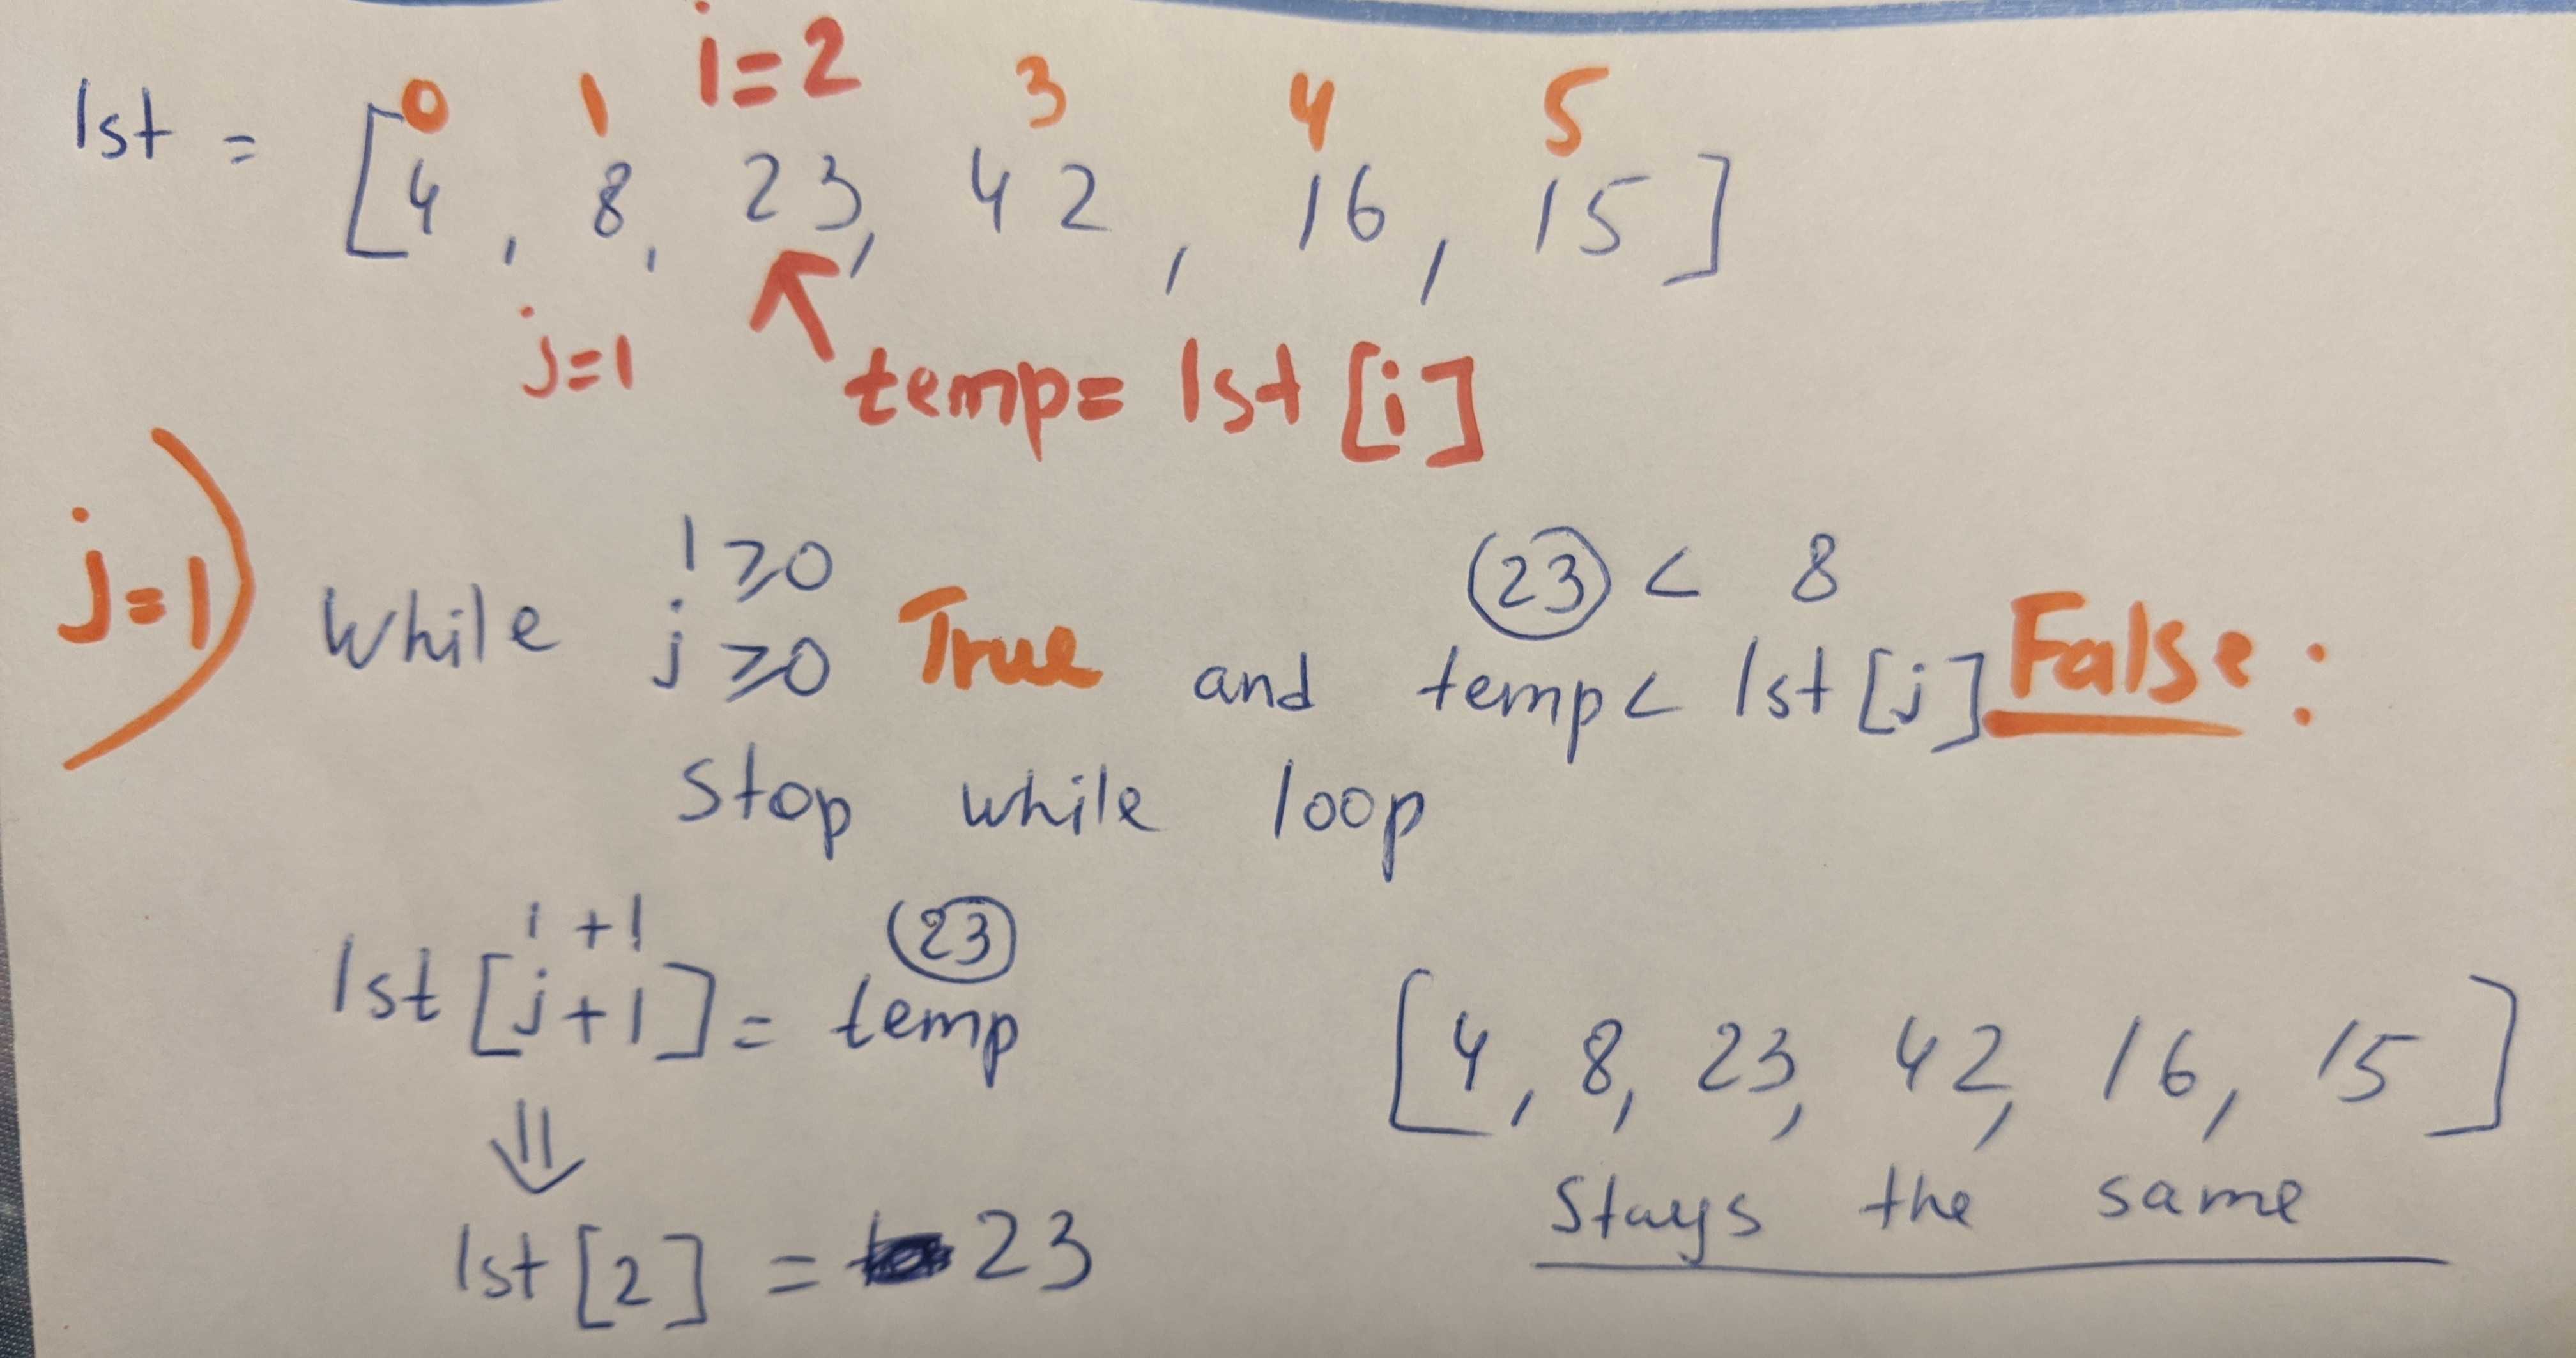 0 1 i=2 3 4 5
lst = [4, 8, 23, 42, 16, 15]
j=1 temp= lst [i]
1 ≥0 23 < 8
j=1) While j ≥0 True and temp< lst [j] False:
Stop while loop
1 +1 23
lst [j+1] = temp
[4, 8, 23, 42, 16, 15]
⇓
Stays the same
lst [2] = 23